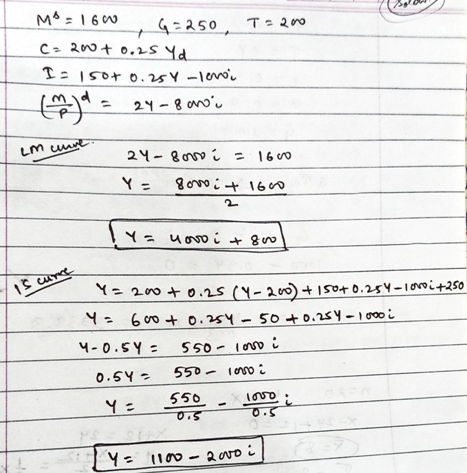 Mˢ = 1600 , G = 250 , T = 200
C = 200 + 0.25 Yd
I = 150 + 0.25Y - 1000i
(M/P)ᵈ = 2Y - 8000i
LM curve
2Y - 8000i = 1600
Y = (8000i + 1600)/2
Y = 4000i + 800
IS curve
Y = 200 + 0.25 (Y - 200) + 150 + 0.25Y - 1000i + 250
Y = 600 + 0.25Y - 50 + 0.25Y - 1000i
Y - 0.5Y = 550 - 1000i
0.5Y = 550 - 1000i
Y = 550/0.5 - 1000/0.5 i
Y = 1100 - 2000i